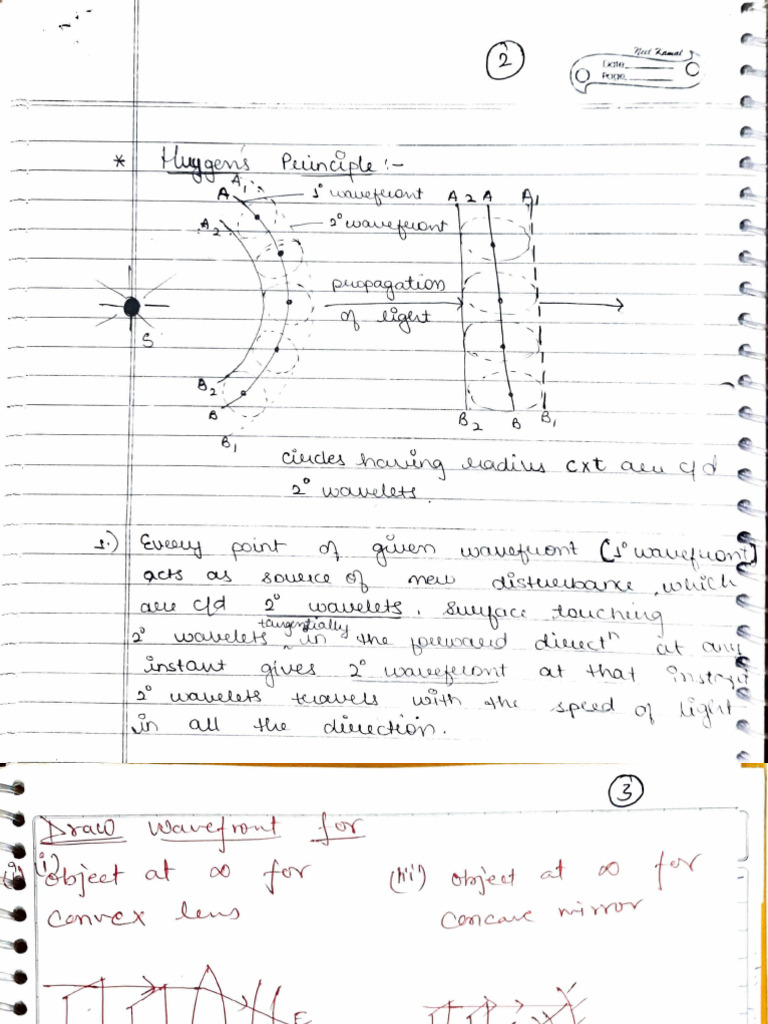 2
Neel Kamal
Date
Page
* Huygen's Principle :-
A A1 1° wavefront A2 A A1
A2 2° wavefront
propagation
of light
S
B2
B
B1
B2 B B1
circles having radius c×t are c/d
2° wavelets.
1.) Every point of given wavefront (1° wavefront)
acts as source of new disturbance, which
are c/d 2° wavelets. Surface touching
2° wavelets tangentially in the forward directn at any
instant gives 2° wavefront at that instant
2° wavelets travels with the speed of light
in all the direction.
3
Draw wavefront for
(i) object at ∞ for
convex lens
(ii) object at ∞ for
concave mirror
F